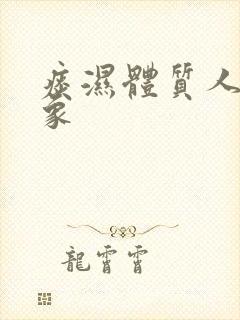 痰濕體質人
家
龍霄霄